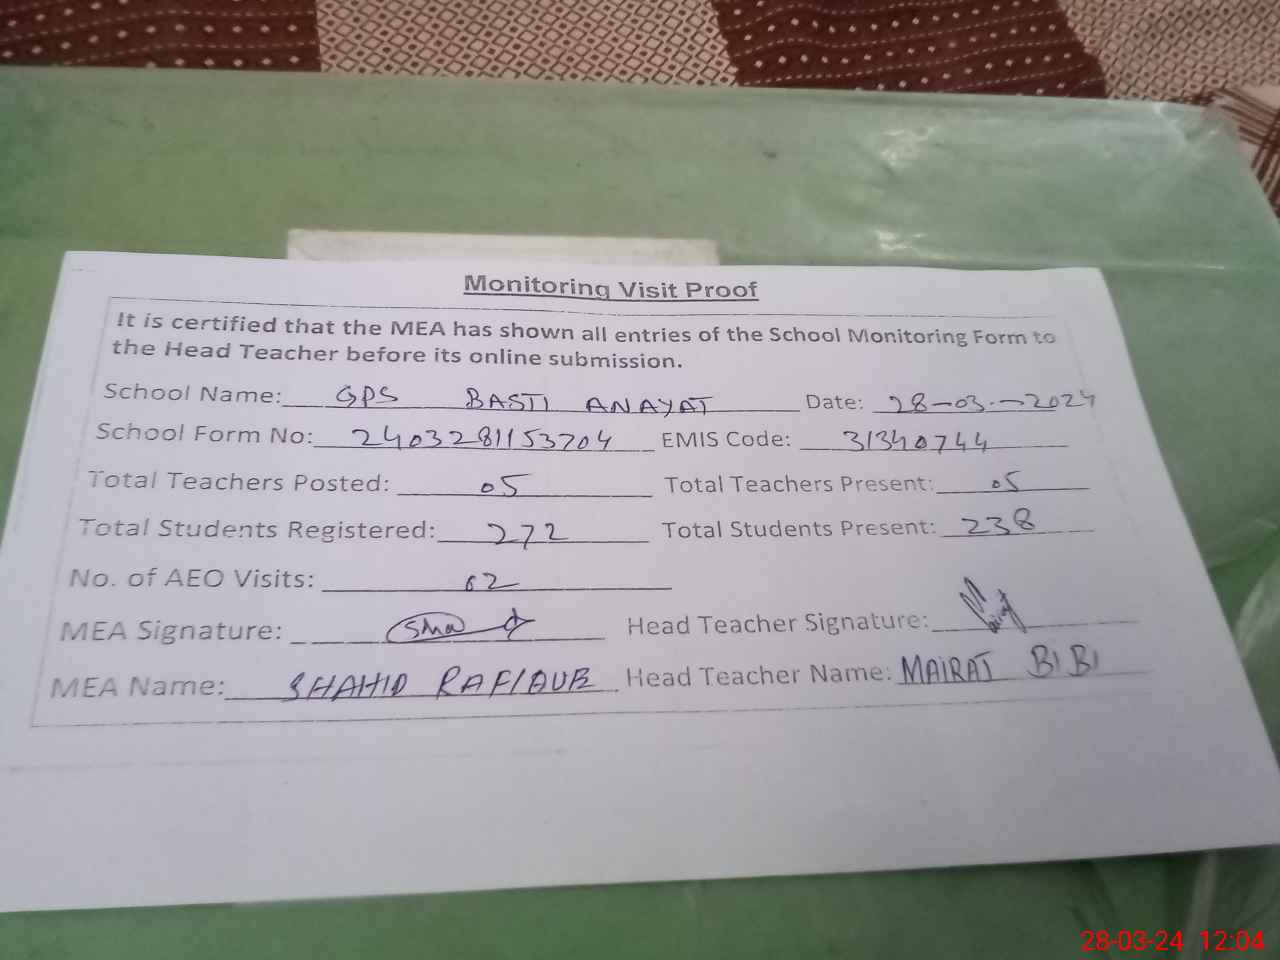 Monitoring Visit Proof
It is certified that the MEA has shown all entries of the School Monitoring Form to
the Head Teacher before its online submission.
School Name: GPS BASTI ANAYAT Date: 28-03-2024
School Form No: 2403281153704 EMIS Code: 31340744
Total Teachers Posted: 05 Total Teachers Present: 05
Total Students Registered: 272 Total Students Present: 238
No. of AEO Visits: 02
MEA Signature: Head Teacher Signature:
MEA Name: SHAHID Head Teacher Name: MAIRAJ BIBI
28-03-24 12:04